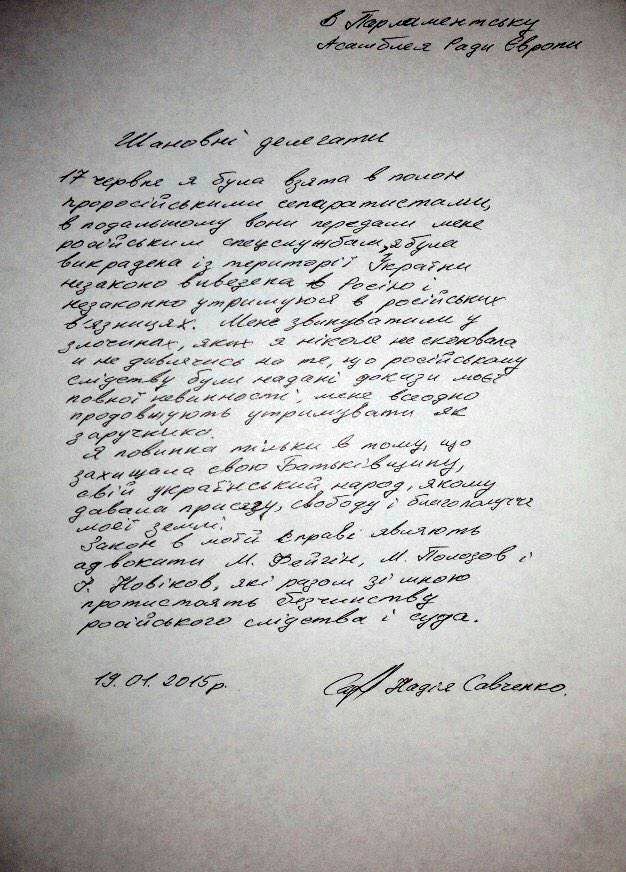 в Парламентську
Асамблея Ради Європи
Шановні делегати
17 червне я була взята в полон
проросійськими сепаратистами,
в подальшому вони передали мене
російським спецслужбам, я була
викрадена із території України
незаконо вивезена в Росію і
незаконно утримуюся в російських
в'язницях. Мене звинуватили у
злочинах, яких я ніколе не скоювала
и не дивлячись на те, що російському
слідству були надані докази моєї
повної невинності, мене всеодно
продовжують утримувати як
заручника.
Я повинна тільки в тому, що
захищала свою Батьківщину,
свій український народ, якому
давала присягу, свободу і благополуччя
моєї землі.
Закон в моїй справі являють
адвокити М. Фейгін, М. Полозов і
І. Новіков, які разом зі мною
протистоять безчинству
російського слідства і суда.
19.01.2015р.
Надія Савченко.